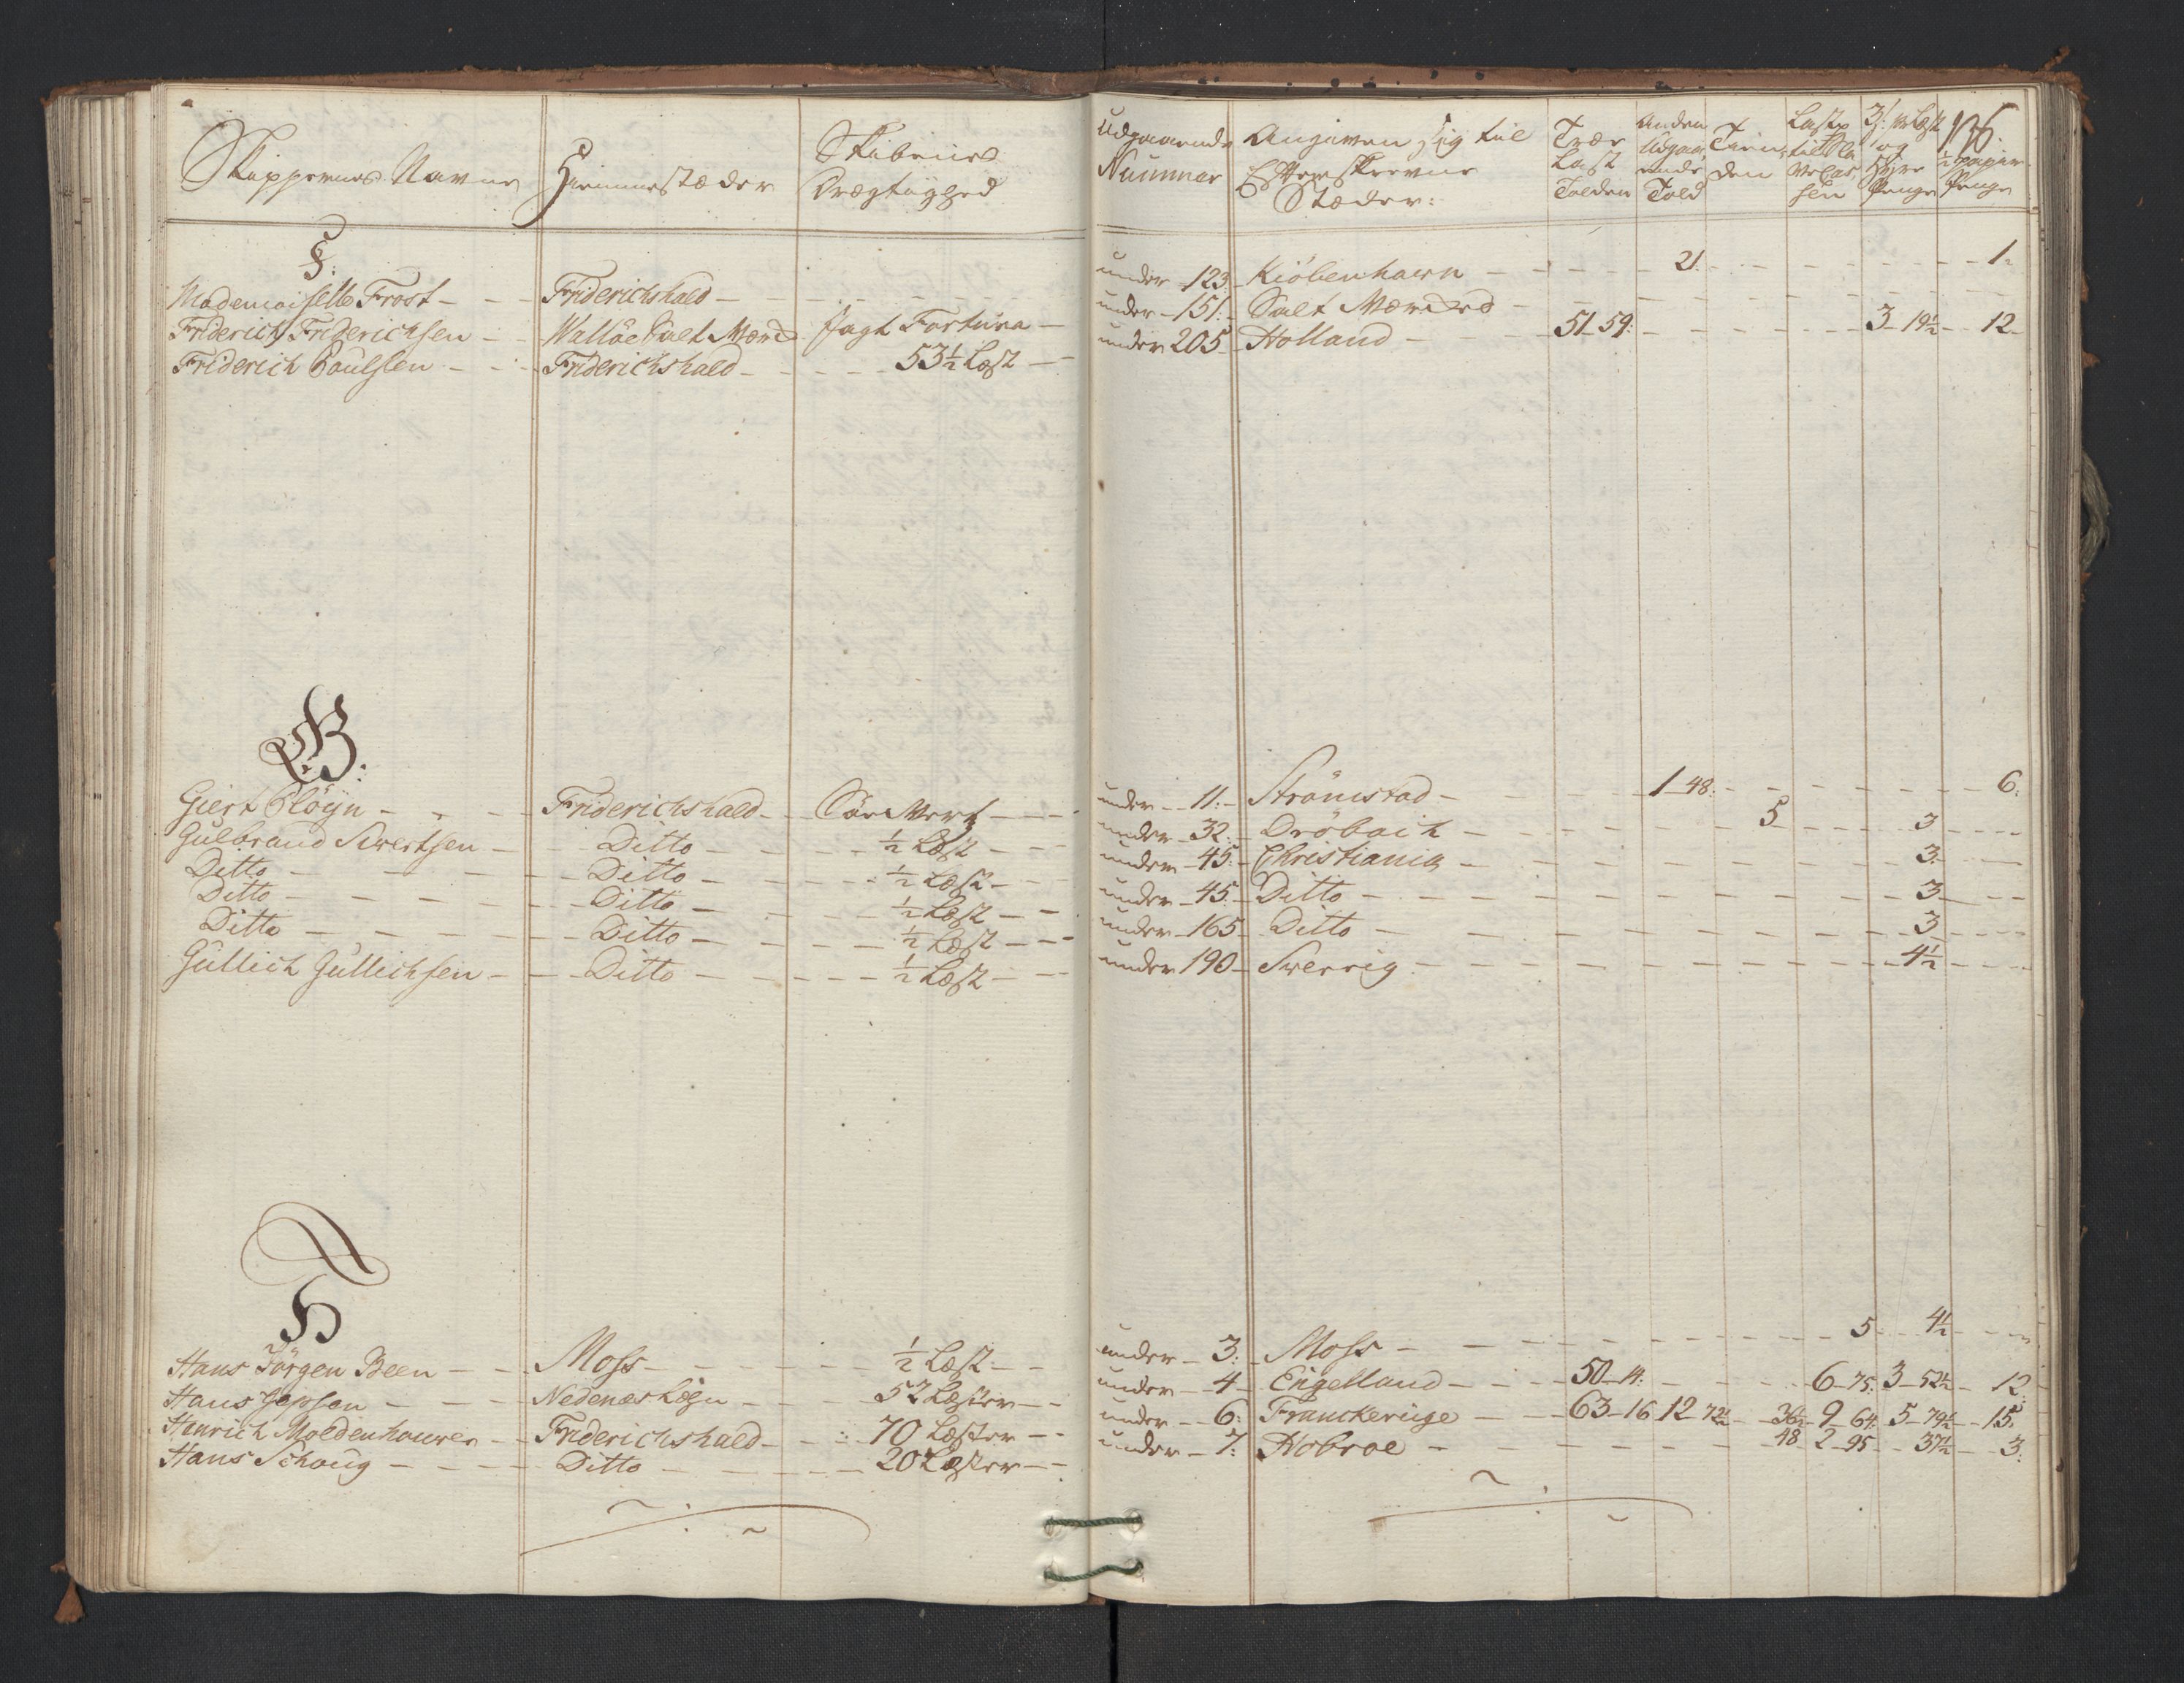 Skippernes Navne Hiemmestæder Skibenes Drægtighed
Udgaaende Nummer Angiven sig til Efterskrevne Stæder: Træe Last Tolden Anden Udgaaende Told Tienden 3/: pr Læst og Hyre Penge 136: ½ papir Penge
F:
Mademoiselle Frost - - Friderichshald - under 123 - Kiöbenhavn - - - 21. - - - 1.
Friderich Friderichsen - - Wallöe Salt Værk Jagt Fortuna - under - 151: - Salt Værked - - -
Friderich Poulsen - - - Friderichshald - - - 53½ Læst - under 205 - Holland - - - 51 59: - - - 3 - 19½ - - 12 -
G:
Giert Pløyn - - - Friderichshald - - - under - - 11: - Strömstad - - - 1 - 48: - - - 6:
Gulbrand Sivertsen - - Ditto - - - ½ Læst - - under - 32: - Dröbach - - - 5 - - - 3 - - -
Ditto - - - Ditto - - - ½ Læst - - under - 45: - Christiania - - - 3. - - -
Ditto - - - Ditto - - - ½ Læst - - under - 45: - Ditto - - - 3 - - -
Ditto - - - Ditto - - - ½ Læst - - - under - 165 - Ditto - - - 3 - - -
Gullich Gullichsen - - Ditto - - - ½ Læst - - under 190 - Sverrig - - - 4½ - - -
H
Hans Jörgen Been - - Moss - - - ½ Læst - - under - 3: - Moss - - - 5 - - 4½ - - -
Hans Jepson - - - Nedenæs Lögn - - - 52 Læster - - under - - 4 - Engelland - - - 50 - 14: - - - 6 - 75: 3 - 52½ - 12:
Henrich Moldenhouwer - - Friderichshald - - - 70 Læster - - under - - 6: Franckerige - - 63 - 16 12 - 72½ - - 36½ - 9 - 64 - 5 - 79½ - - 15:
Hans Schoug - - - Ditto - - - 20 Læster - - under - 7: Hobroe - - - 48 - 2 - 95 - - 37½ - - 3: